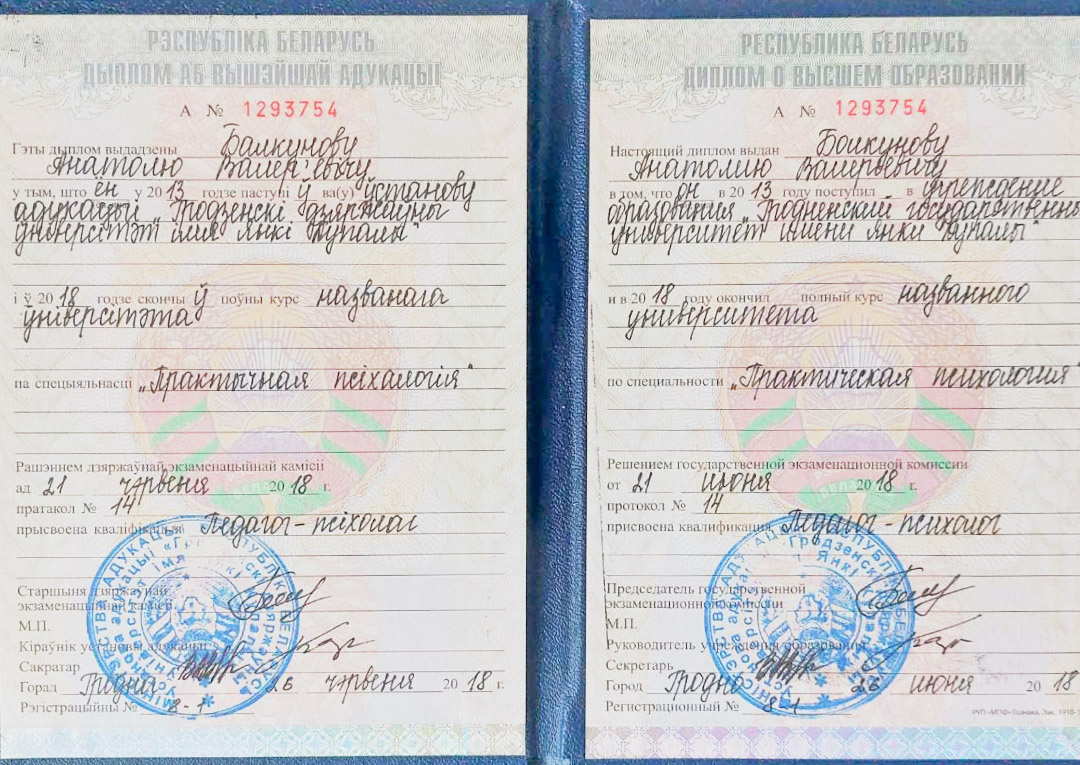 РЭСПУБЛІКА БЕЛАРУСЬ
ДЫПЛОМ АБ ВЫШЭЙШАЙ АДУКАЦЫІ
А № 1293754
Гэты дыплом выдадзены Балкунову
Анатолю Валер'евічу
у тым, што ён у 2013 годзе паступі ў ва(у) ўстанову
адукацыі „Гродзенскі дзяржаўны
ўніверсітэт імя Янкі Купалы"
і ў 2018 годзе скончы ў поўны курс названага
ўніверсітэта
па спецыяльнасці „Практычная псіхалогія"
Рашэннем дзяржаўнай экзаменацыйнай камісіі
ад 21 чэрвеня 2018 г.
пратакол № 14
прысвоена кваліфікацыя Педагог-псіхолаг
Старшыня дзяржаўнай
экзаменацыйнай камісіі
М.П.
Кіраўнік установы адукацыі
Сакратар
Горад Гродна 26 чэрвеня 2018 г.
Рэгістрацыйны № 8-1
РЕСПУБЛИКА БЕЛАРУСЬ
ДИПЛОМ О ВЫСШЕМ ОБРАЗОВАНИИ
А № 1293754
Настоящий диплом выдан Болкунову
Анатолию Валерьевичу
в том, что он в 2013 году поступил в учреждение
образования „Гродненский государственный
университет имени Янки Купалы"
и в 2018 году окончил полный курс названного
университета
по специальности „Практическая психология"
Решением государственной экзаменационной комиссии
от 21 июня 2018 г.
протокол № 14
присвоена квалификация Педагог-психолог
Председатель государственной
экзаменационной комиссии
М.П.
Руководитель учреждения образования
Секретарь
Город Гродно 26 июня 2018
Регистрационный № 8-1